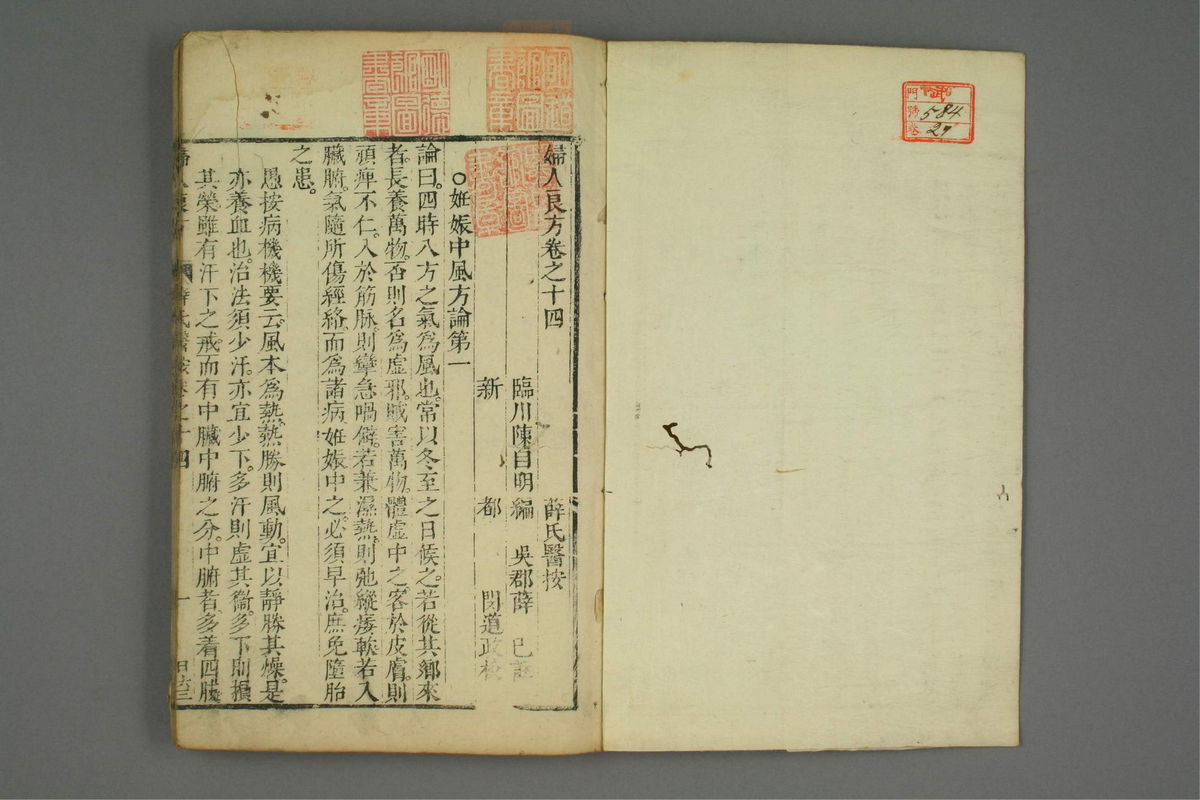 婦人良方卷之十四
薛氏醫按
臨川陳自明編
吳郡薛 己註
新都
閔道政校
○妊娠中風方論第一
論曰。四時八方之氣爲風也。常以冬至之日候之。若從其鄉來
者。長養萬物。否則名爲虛邪。賊害萬物。體虛中之。客於皮膚。則
頑痺不仁。入於筋脉。則攣急喎僻。若兼濕熱。則弛縱痿軟。若入
臟腑。氣隨所傷經絡。而爲諸病。妊娠中之。必須早治。庶免隨胎
之患。
愚按病機機要云。風本爲熱。熱勝則風動。宜以靜勝其燥。是
亦養血也。治法須少汗。亦宜少下。多汗則虛其衞。多下則損
其榮。雖有汗下之戒。而有中臟中腑之分。中腑者。多着四肢
婦人良方
薛氏醫按卷之十四
一
門
號
卷
584
27